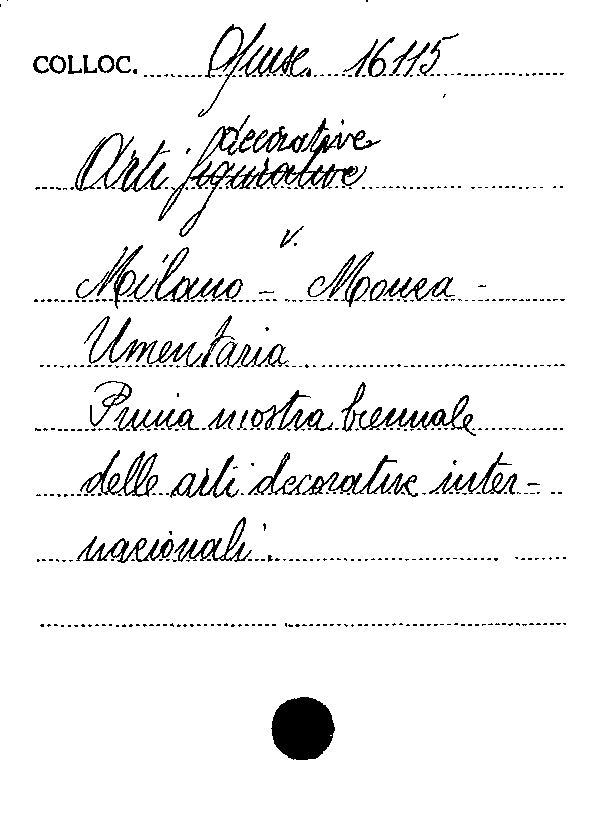 COLLOC. Opusc. 16115
Arti decorative
v.
Milano - Monza -
Umanitaria
Prima mostra biennale
delle arti decorative inter-
nazionali.